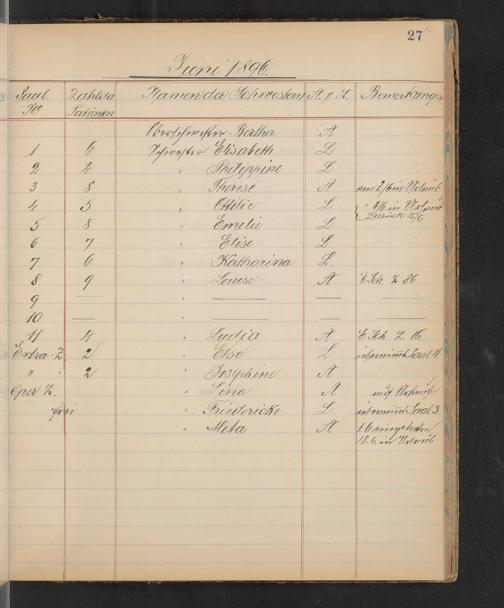 27
Juni 1896.
Saal No Zahl der Patienten Namen der Schwestern A. o. L. Bemerkungen
Oberschwester Bertha A
1 6 Schwester Elisabeth L
2 4 " Philippine L
3 8 " Therese A am 2/6 in Urlaub
4 5 " Ottilie L 4/6 in Urlaub
zurück 15/6
5 8 " Emelie L
6 7 " Elise L
7 6 " Katharina L.
8 9 " Louise A E. Sch. Z. 86
9 — " — — —
10 — " — — —
11 4 " Lydia A E. Sch. Z. 16
Extra-Z 2 " Else L übernimmt Saal 4
" " 2 " Josephine A
Oper Z. " Lina A auf Urlaub
frei " Friedericke L übernimmt Saal 3
" Meta A 1.6 eingetreten
18.6. in Urlaub